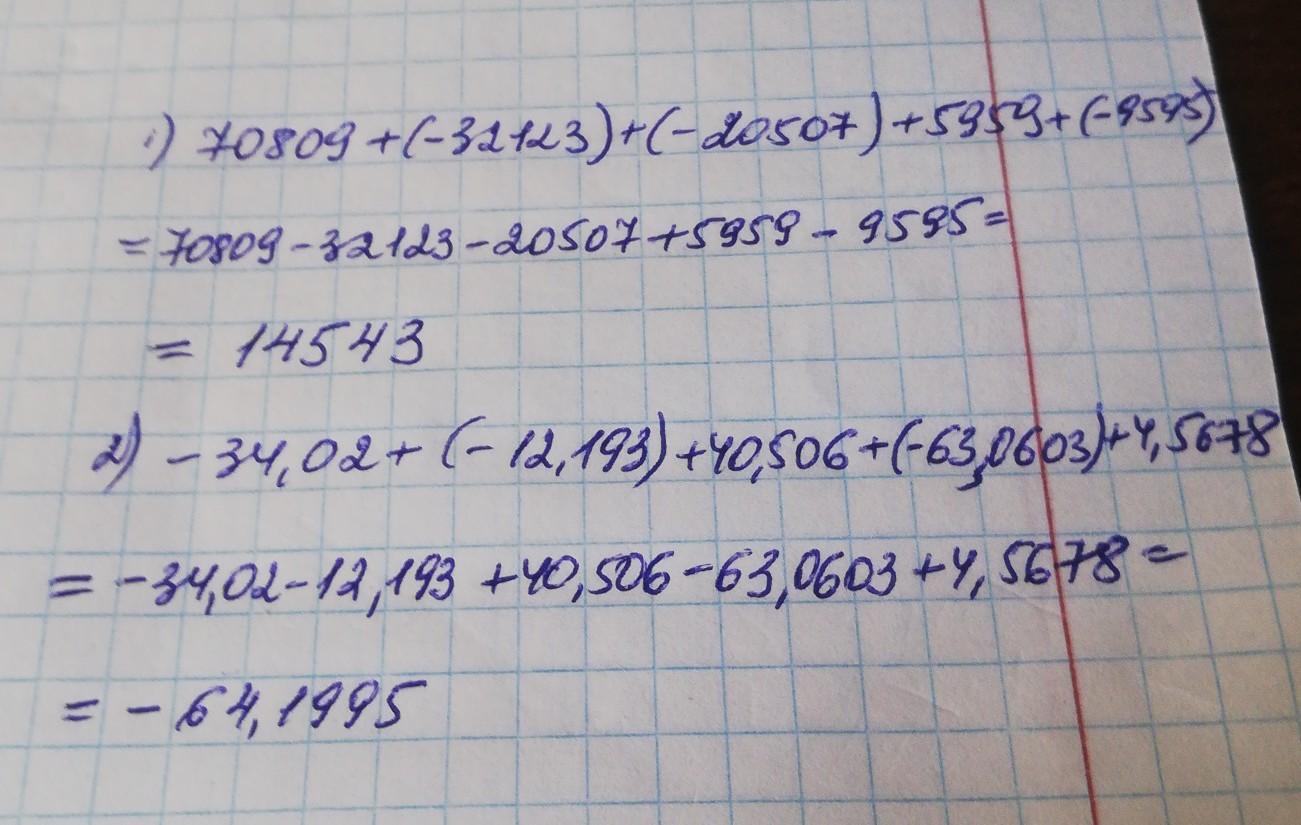 1) 70809 + (-32123) + (-20507) + 5959 + (-9595)
= 70809 - 32123 - 20507 + 5959 - 9595 =
= 14543
2) - 34,02 + (- 12,193) + 40,506 + (-63,0603) + 4,5678
= -34,02 - 12,193 + 40,506 - 63,0603 + 4,5678 =
= - 64,1995